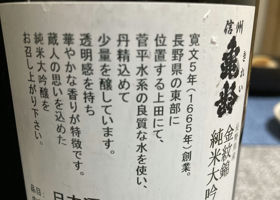 信州
亀齢
きれい
純米大吟
寛文5年(1665年)創業。
長野県の東部に
位置する上田にて、
菅平水系の良質な水を使い、
丹精込めて
少量を醸しています。
透明感を持ち
華やかな香りが特徴です。
蔵人の思いを込めた
純米大吟醸を
お召し上がり下さい。
日本酒